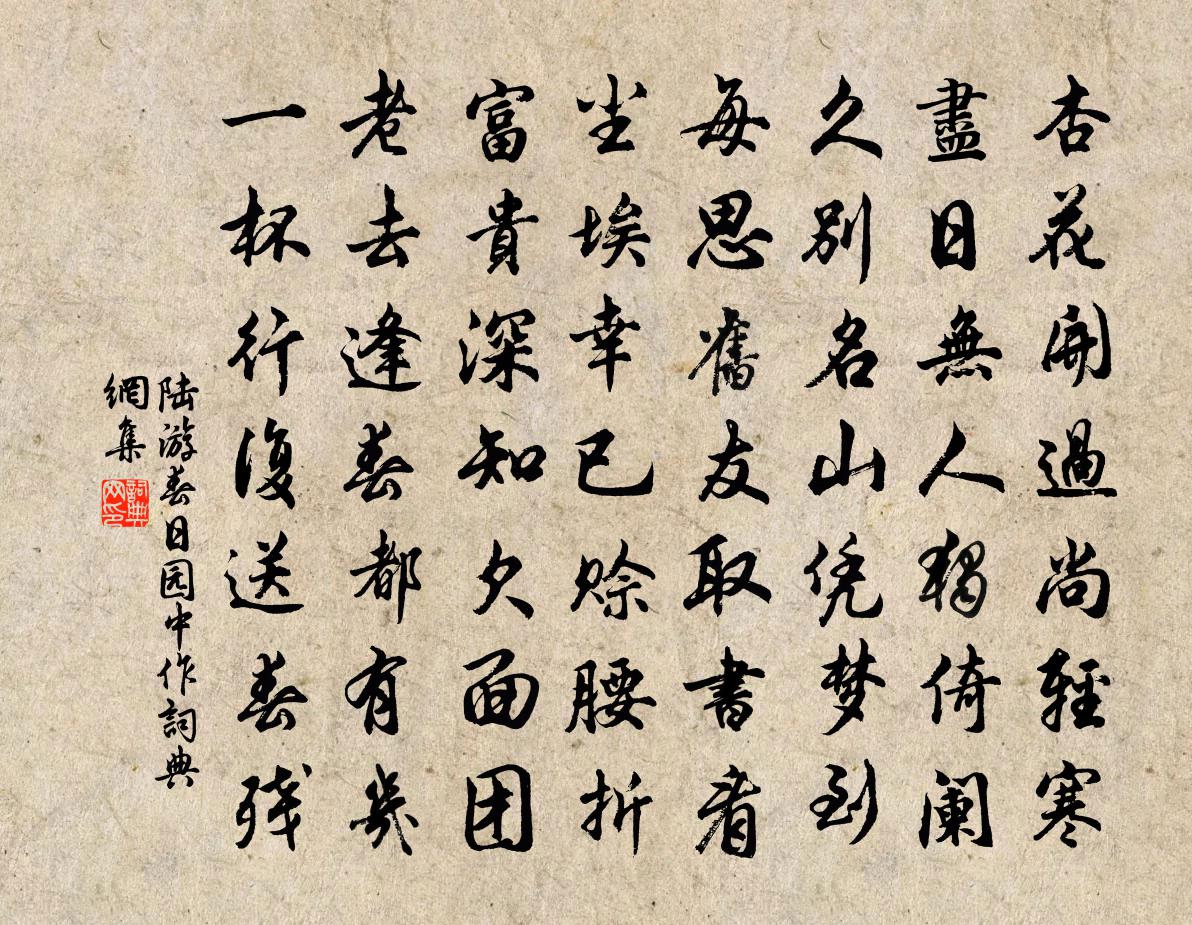 杏花開過尚輕寒
盡日無人獨倚闌
久别名山凭梦到
每思舊友取書看
尘埃幸已赊腰折
富貴深知欠面团
老去逢春都有幾
一杯行復送春残
陆游春日园中作詞典
網集
詞典
网印